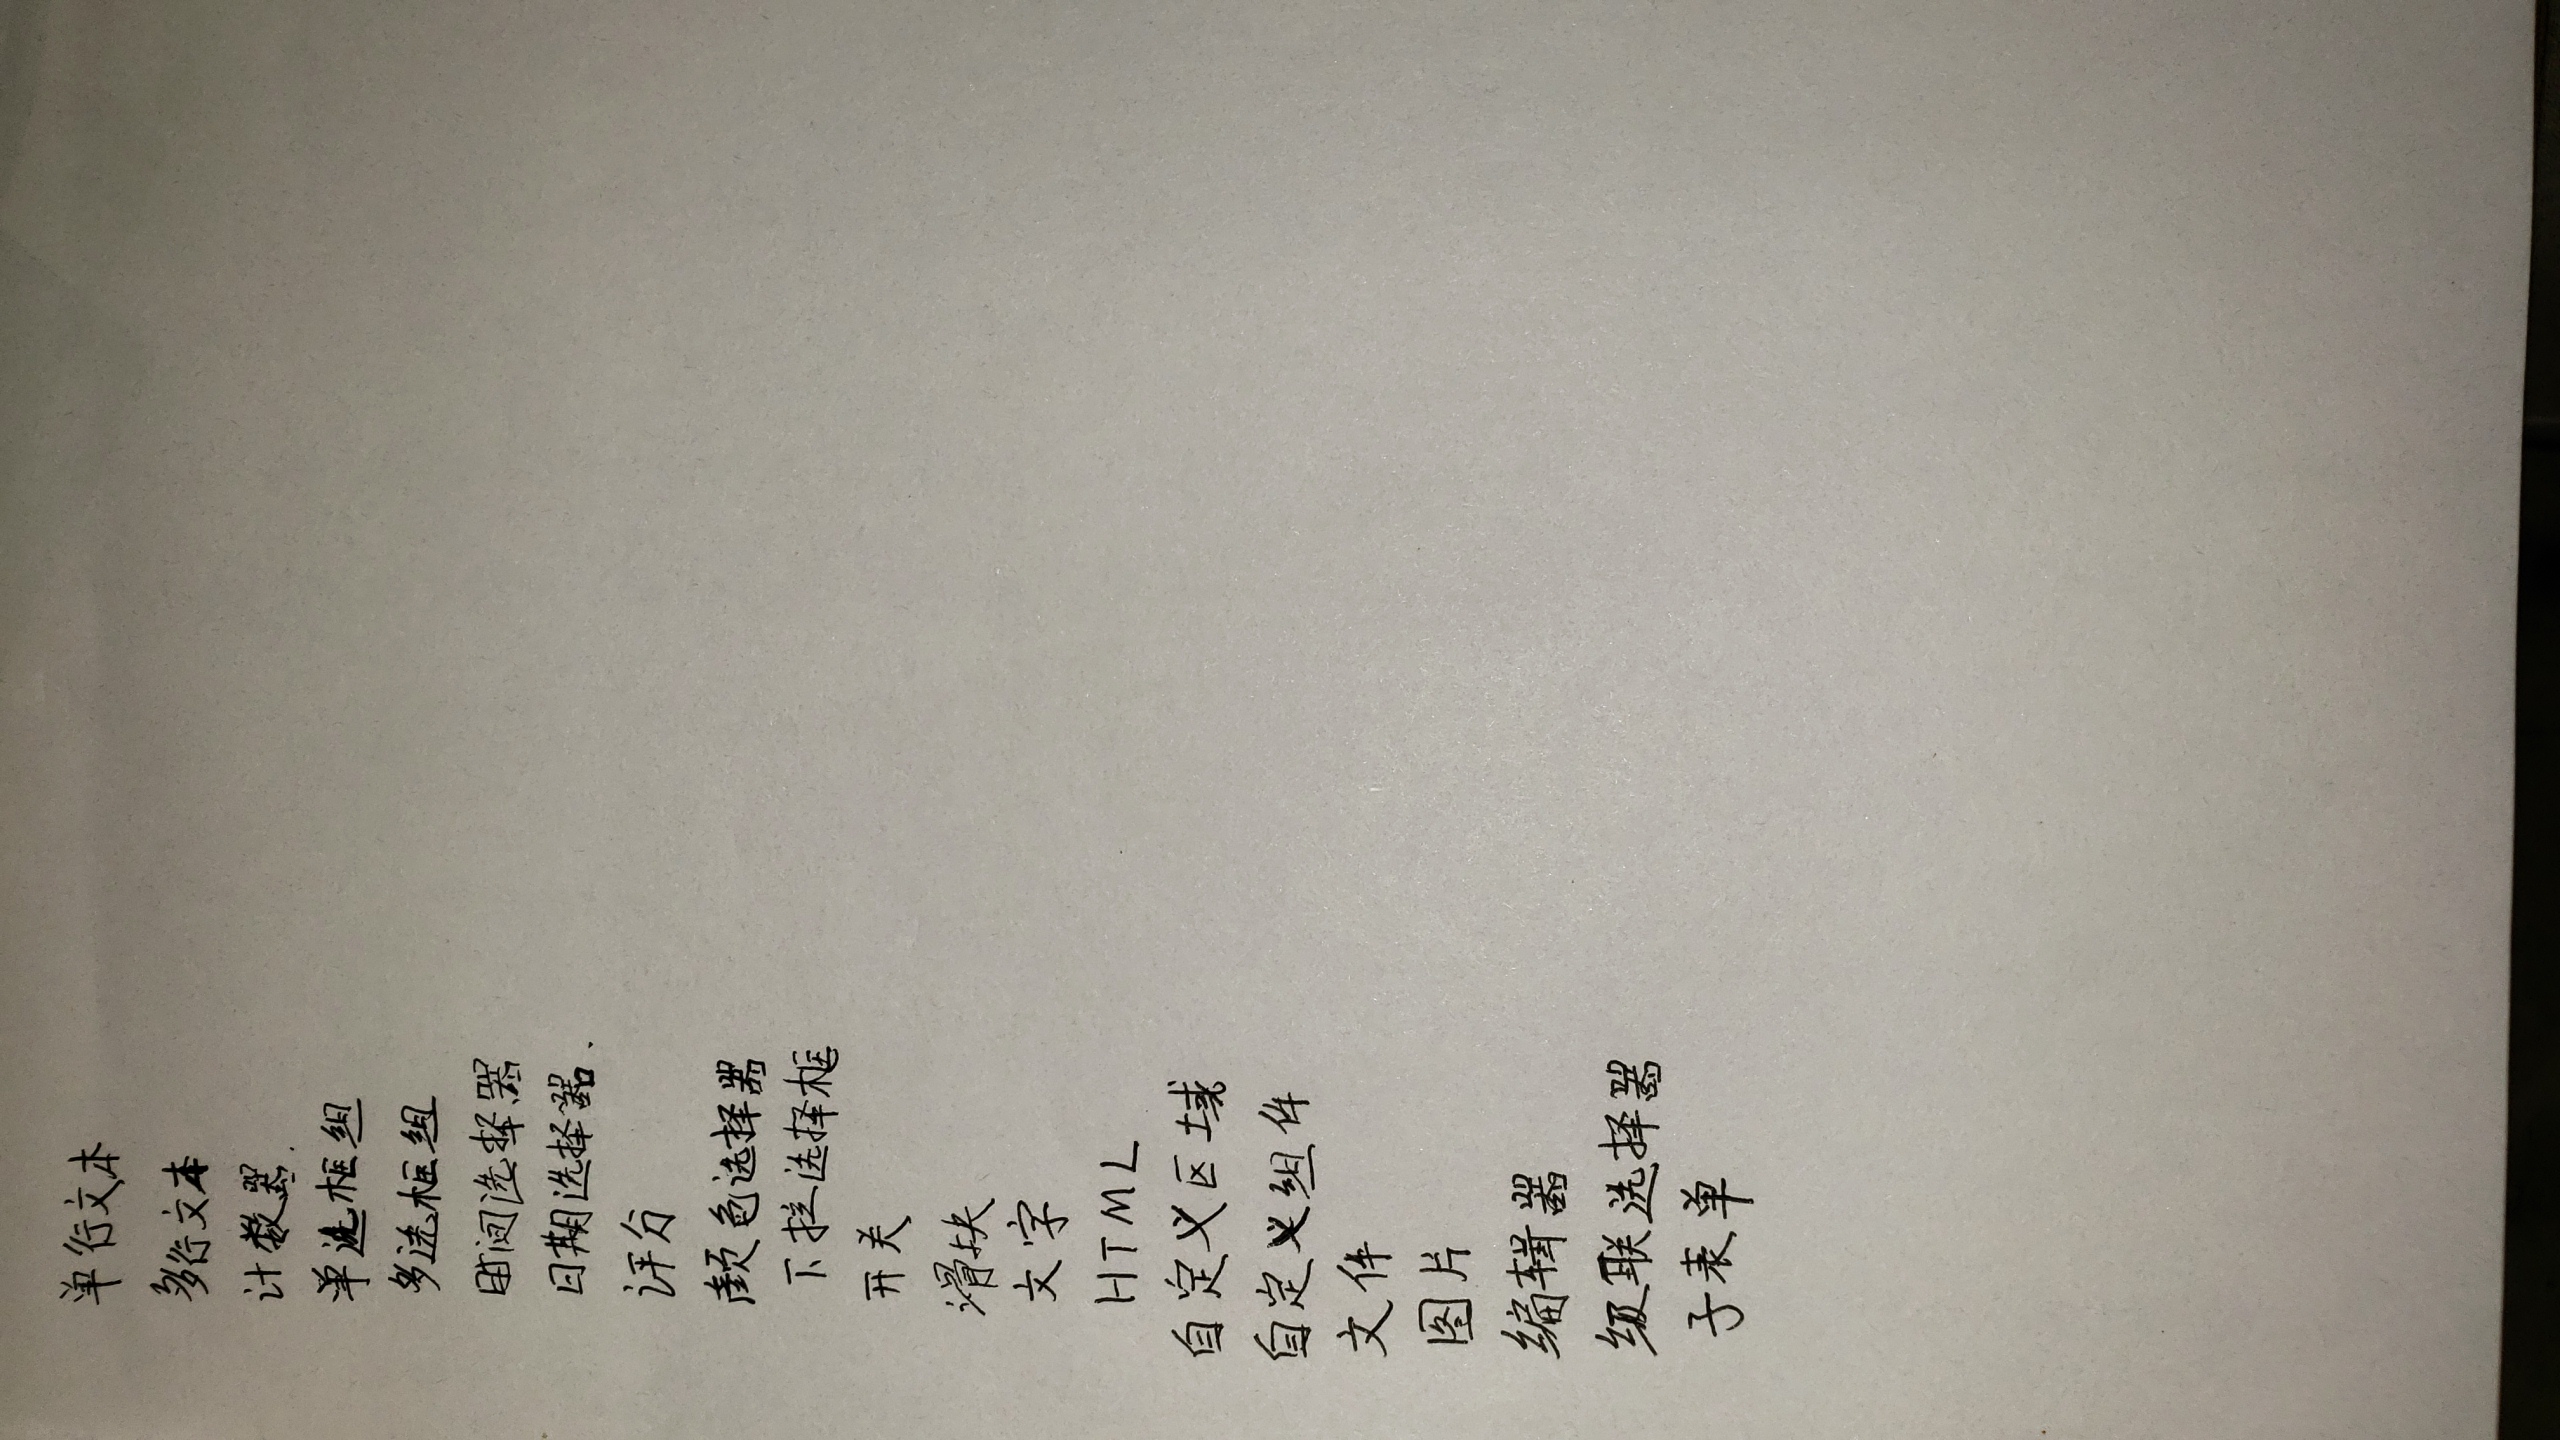 单行文本
多行文本
计数器.
单选框组
多选框组
时间选择器
日期选择器.
评分
颜色选择器
下拉选择框
开关
滑块
文字
HTML
自定义区域
自定义组件
文件
图片
编辑器
级联选择器
子表单